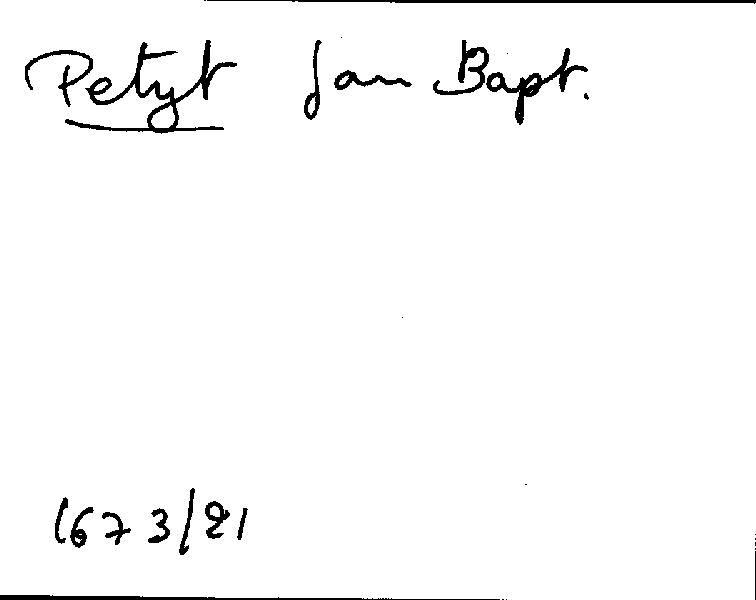 Petyt Jan Bapt.
1673/21